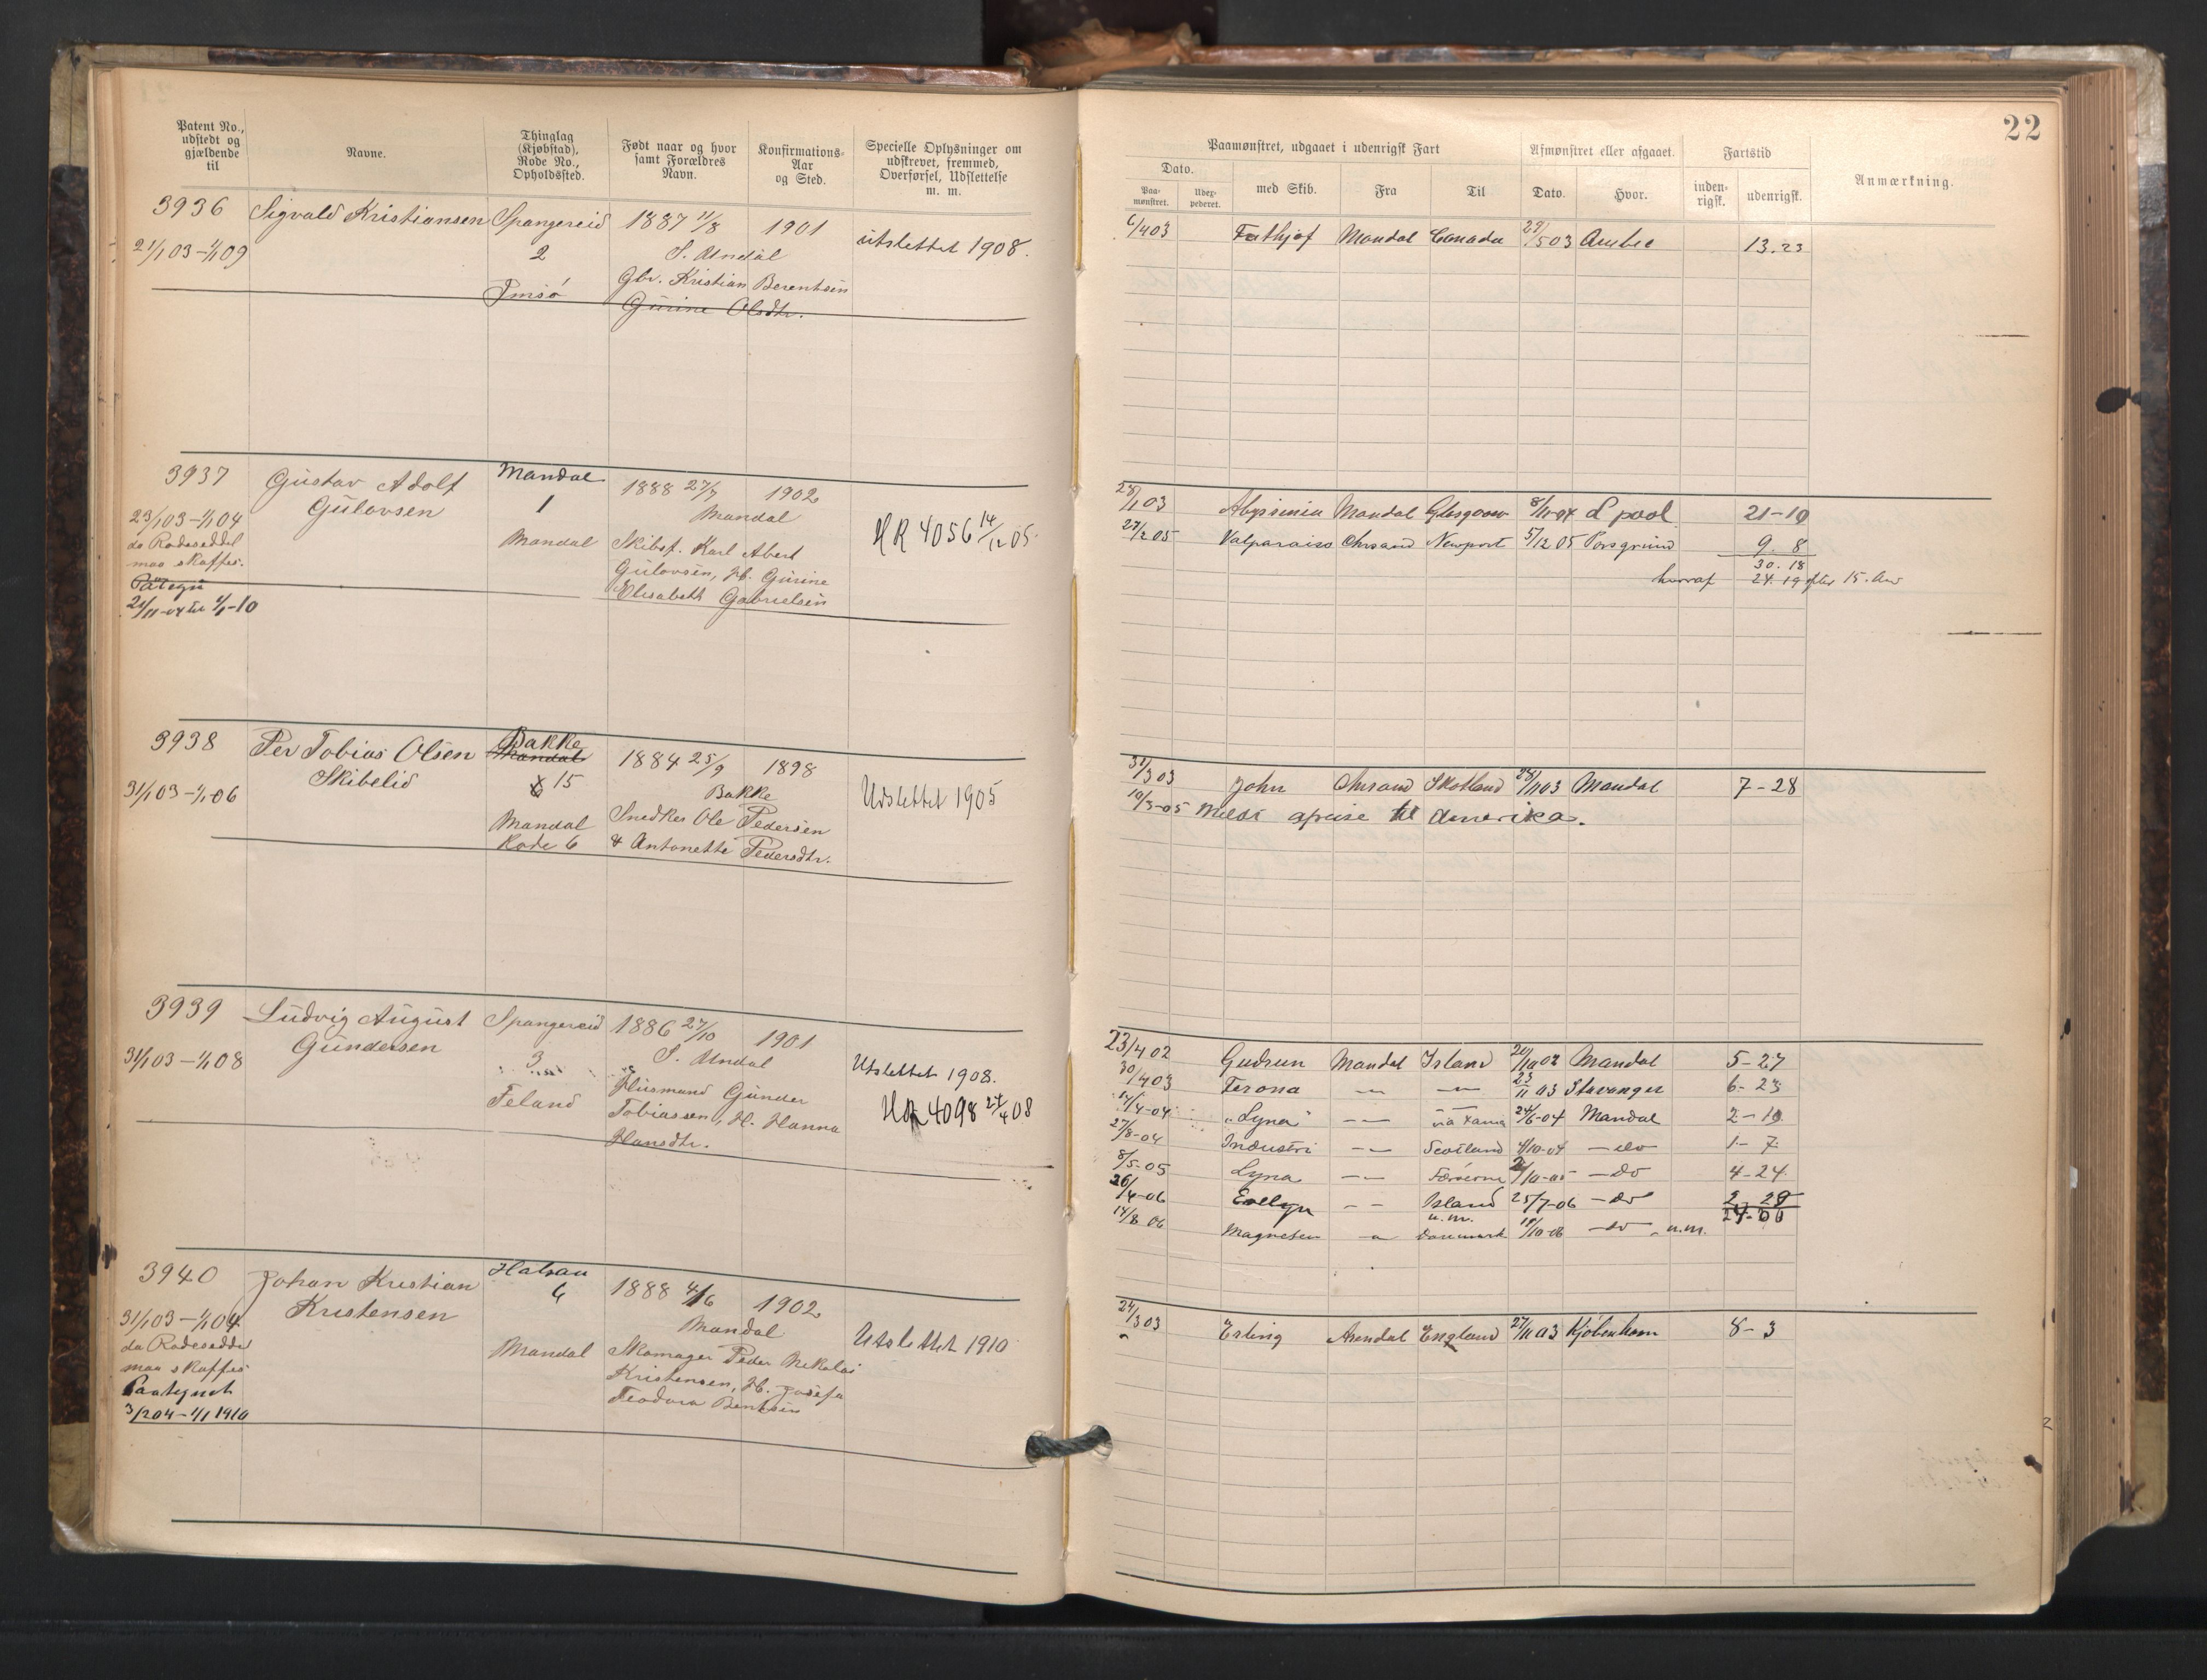 22
Patent No., udstedt og gjældende til
Navne.
Thinglag (Kjøbstad), Rode No., Opholdssted.
Født naar og hvor samt Forældres Navn.
Konfirmations-Aar og Sted.
Specielle Oplysninger om udskrevet, fremmed, Overførsel, Udslettelse m. m.
Paamønstret, udgaaet i udenrigsk Fart
Afmønstret eller afgaaet.
Fartstid
Anmærkning.
Dato.
Paa-mønstret.
Uder-pederet.
med Skib.
Fra
Til
Dato.
Hvor.
inden-rigsk.
udenrigsk.
3936 Sigvald Kristiansen Spangereid 1887 11/8 1901
21/1 03 - 1/1 09 2 S. Undal utslettet 1908.
Gbr. Kristian Berentsen
Gurine Olsdtr.
6/4 03 Mandal Canada 29/5 03 13.23
3937 Gustav Adolf Mandal 1888 27/7 1902
Gulovsen 1 Mandal
23/1 03 - 1/1 04 Mandal Skibsf. Karl Abert HR 4056 14/12 05.
da Rodeseddel Gulovsen, H. Gurine
maa skaffes. Elisabeth Gabrielsen
28/1 03 Abyssinia Mandal Glasgow 8/11-04 L pool 21-10
27/2 05 Valparaiso Chrsand Newport 5/12 05 Porsgrund 9. 8
30. 18
heraf 24. 19 efter 15. Aar
3938 Per Tobias Olsen Bakke Mandal 1884 25/9 1898
Skibelid 15 Bakke
31/1 03 - 1/1 06 Mandal Snedker Ole Pedersen Udslettet 1905
Rode 6 & Antonette Pedersdtr.
31/3 03 John Chrsand Skotland 28/11 03 Mandal 7-28
10/3-05 Meldt afreise til Amerika.
3939 Ludvig August Spangereid 1886 27/10 1901
Gundersen 3 S. Undal
31/1 03 - 1/1 08 Husmand Gunder Utslettet 1908.
Feland Tobiassen, H. Hanna HR 4098 24/4 08
Hansdtr.
23/4 02 Gudrun Mandal Island 20/10 02 Mandal 5-27
30/4 03 Ferona — — 23/11 03 Stavanger 6-23
14/4-04 "Lyna" — 24/6-04 Mandal 2-10
27/8-04 Industri — Scotland 4/10-04 — do 1-7
8/5-05 Lyna — Færøerne — do 4-24
26/4-06 Evelyn — Island 25/7-06 — do 2 29
14/8 06 — u.m. Danmark — do — u.m.
3940 Johan Kristian Halsaa 1888 4/6 1902
Kristensen Mandal
31/1 03 - 1/1 04 Mandal Skomager Peder Nikolai Utslettet 1910
da Rodeseddel Kristensen, H. Josefa
maa skaffes Teodora Bentsen
Paategnet
3/2 04 - 1/1 1910
24/3 03 Erling Arendal England 27/11 03 Kjøbenhavn 8-3